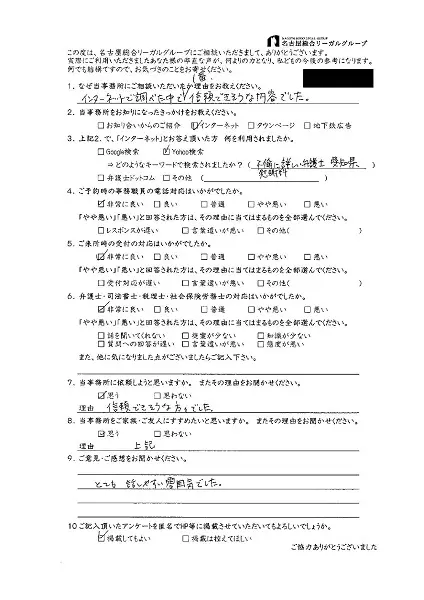 名古屋総合リーガルグループ
この度は、名古屋総合リーガルグループにご相談いただきまして、ありがとうございます。
実際にご利用いただきましたあなた様の率直な声が、何よりの力となり、私どもの今後の参考になります。
何でも結構ですので、お気づきのことをお寄せください。
1. なぜ当事務所にご相談いただいたか理由をお教えください。
インターネットで調べた中で信頼できそうな内容でした。
2. 当事務所をお知りになったきっかけをお教えください。
□お知り合いからのご紹介 ☑インターネット □タウンページ □地下鉄広告
3. 上記2.で、「インターネット」とお答え頂いた方 何を利用されましたか。
□Google検索 ☑Yahoo検索
⇒どのようなキーワードで検索されましたか?( 不倫に詳しい弁護士 愛知県 )
□弁護士ドットコム □その他( 慰謝料 )
4. ご予約時の事務職員の電話対応はいかがでしたか。
☑非常に良い □良い □普通 □やや悪い □悪い
「やや悪い」「悪い」と回答された方は、その理由に当てはまるものを全部選んでください。
□レスポンスが遅い □言葉遣いが悪い □その他( )
5. ご来所時の受付の対応はいかがでしたか。
☑非常に良い □良い □普通 □やや悪い □悪い
「やや悪い」「悪い」と回答された方は、その理由に当てはまるものを全部選んでください。
□受付対応が遅い □言葉遣いが悪い □その他( )
6. 弁護士・司法書士・税理士・社会保険労務士の対応はいかがでしたか。
☑非常に良い □良い □普通 □やや悪い □悪い
「やや悪い」「悪い」と回答された方は、その理由に当てはまるものを全部選んでください。
□話を聞いてくれない □提案が少ない □知識が少ない
□質問への回答が遅い □言葉遣いが悪い □態度が悪い
また、他に気になりました点がございましたらご記入下さい。
7. 当事務所に依頼しようと思いますか。 またその理由をお聞かせください。
☑思う □思わない
理由 信頼できそうな方々でした。
8. 当事務所をご家族・ご友人にすすめたいと思いますか。 またその理由をお聞かせください。
☑思う □思わない
理由 上記
9. ご意見・ご感想をお聞かせください。
とても話しやすい雰囲気でした。
10 ご記入頂いたアンケートを匿名でHP等に掲載させていただいてもよろしいでしょうか。
☑掲載してもよい □掲載は控えてほしい
ご協力ありがとうございました